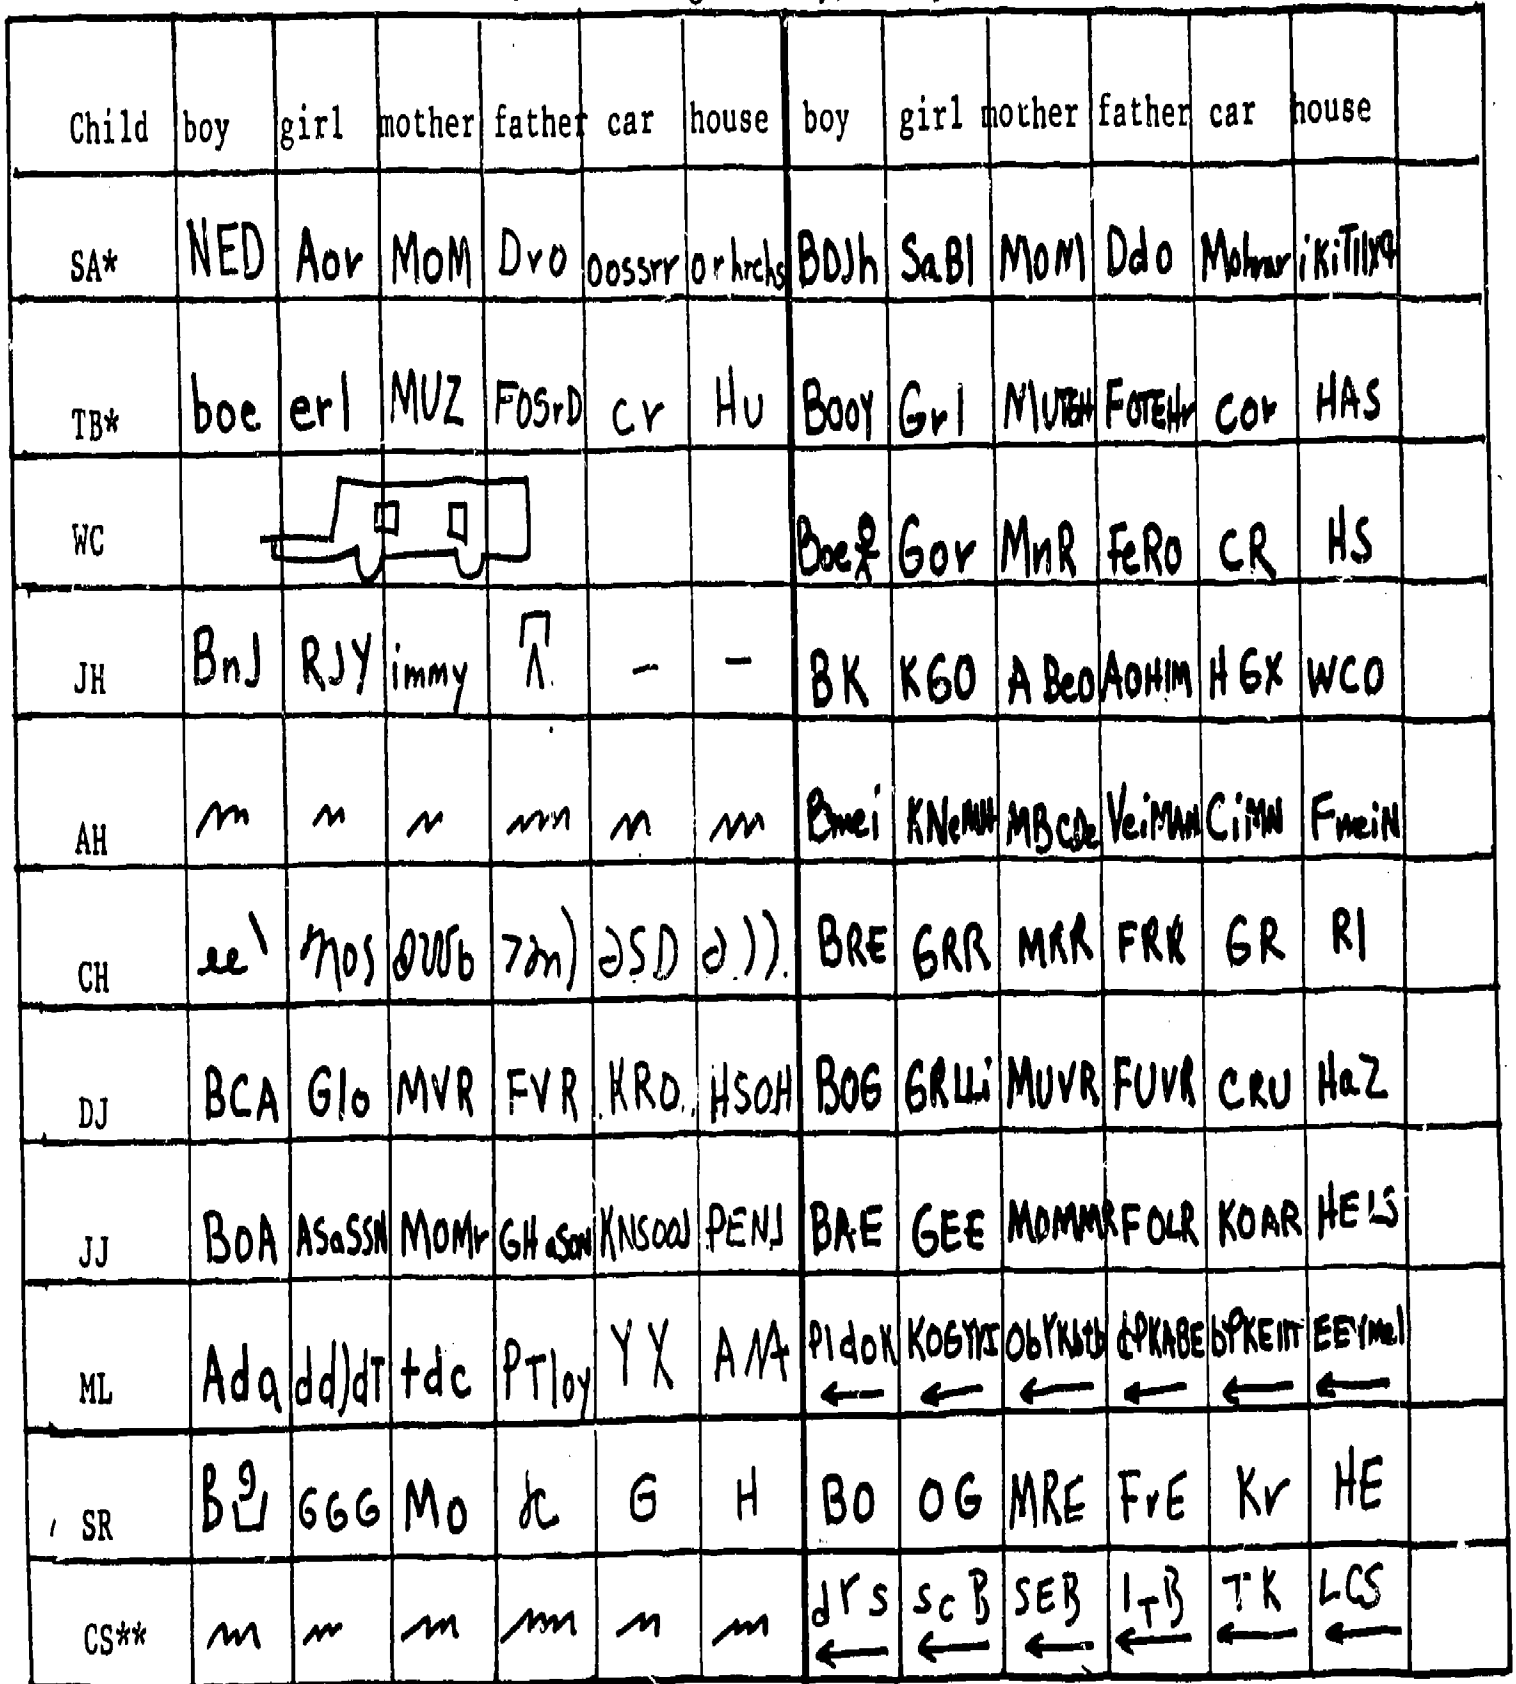 Child boy girl mother father car house boy girl mother father car house
SA* NED Aor MoM Dro oossrr orhrchs BOJh SaBl MOM Ddo
TB* boe erl MUZ FOSrD cr Hu BooY Grl FOTEHr cor HAS
WC Boe Gor MnR FeRo CR HS
JH BnJ RJY immy - - BK KGO A Beo AOHIM HGX WCO
AH Bmei KNeMH MBcDe VeiMAM CiMN FmeiN
CH ee mos BRE GRR MRR FRR GR RI
DJ BCA Glo MVR FVR KRO HSOH BOG GRLLi MUVR FUVR CRU HaZ
JJ BoA ASaSSN MOMr GHaSoN KNSOOJ PENJ BAE GEE MOMMR FOLR KOAR HELS
ML Ada dd)dT tdc PTloy YX PldoK
SR B GGG Mo G H BO OG MRE FrE Kr HE
CS** drs scB SEB ITB TK LCS